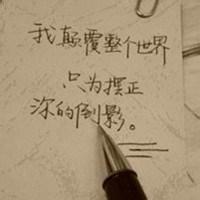 我颠覆整个世界
只为摆正
你的倒影。